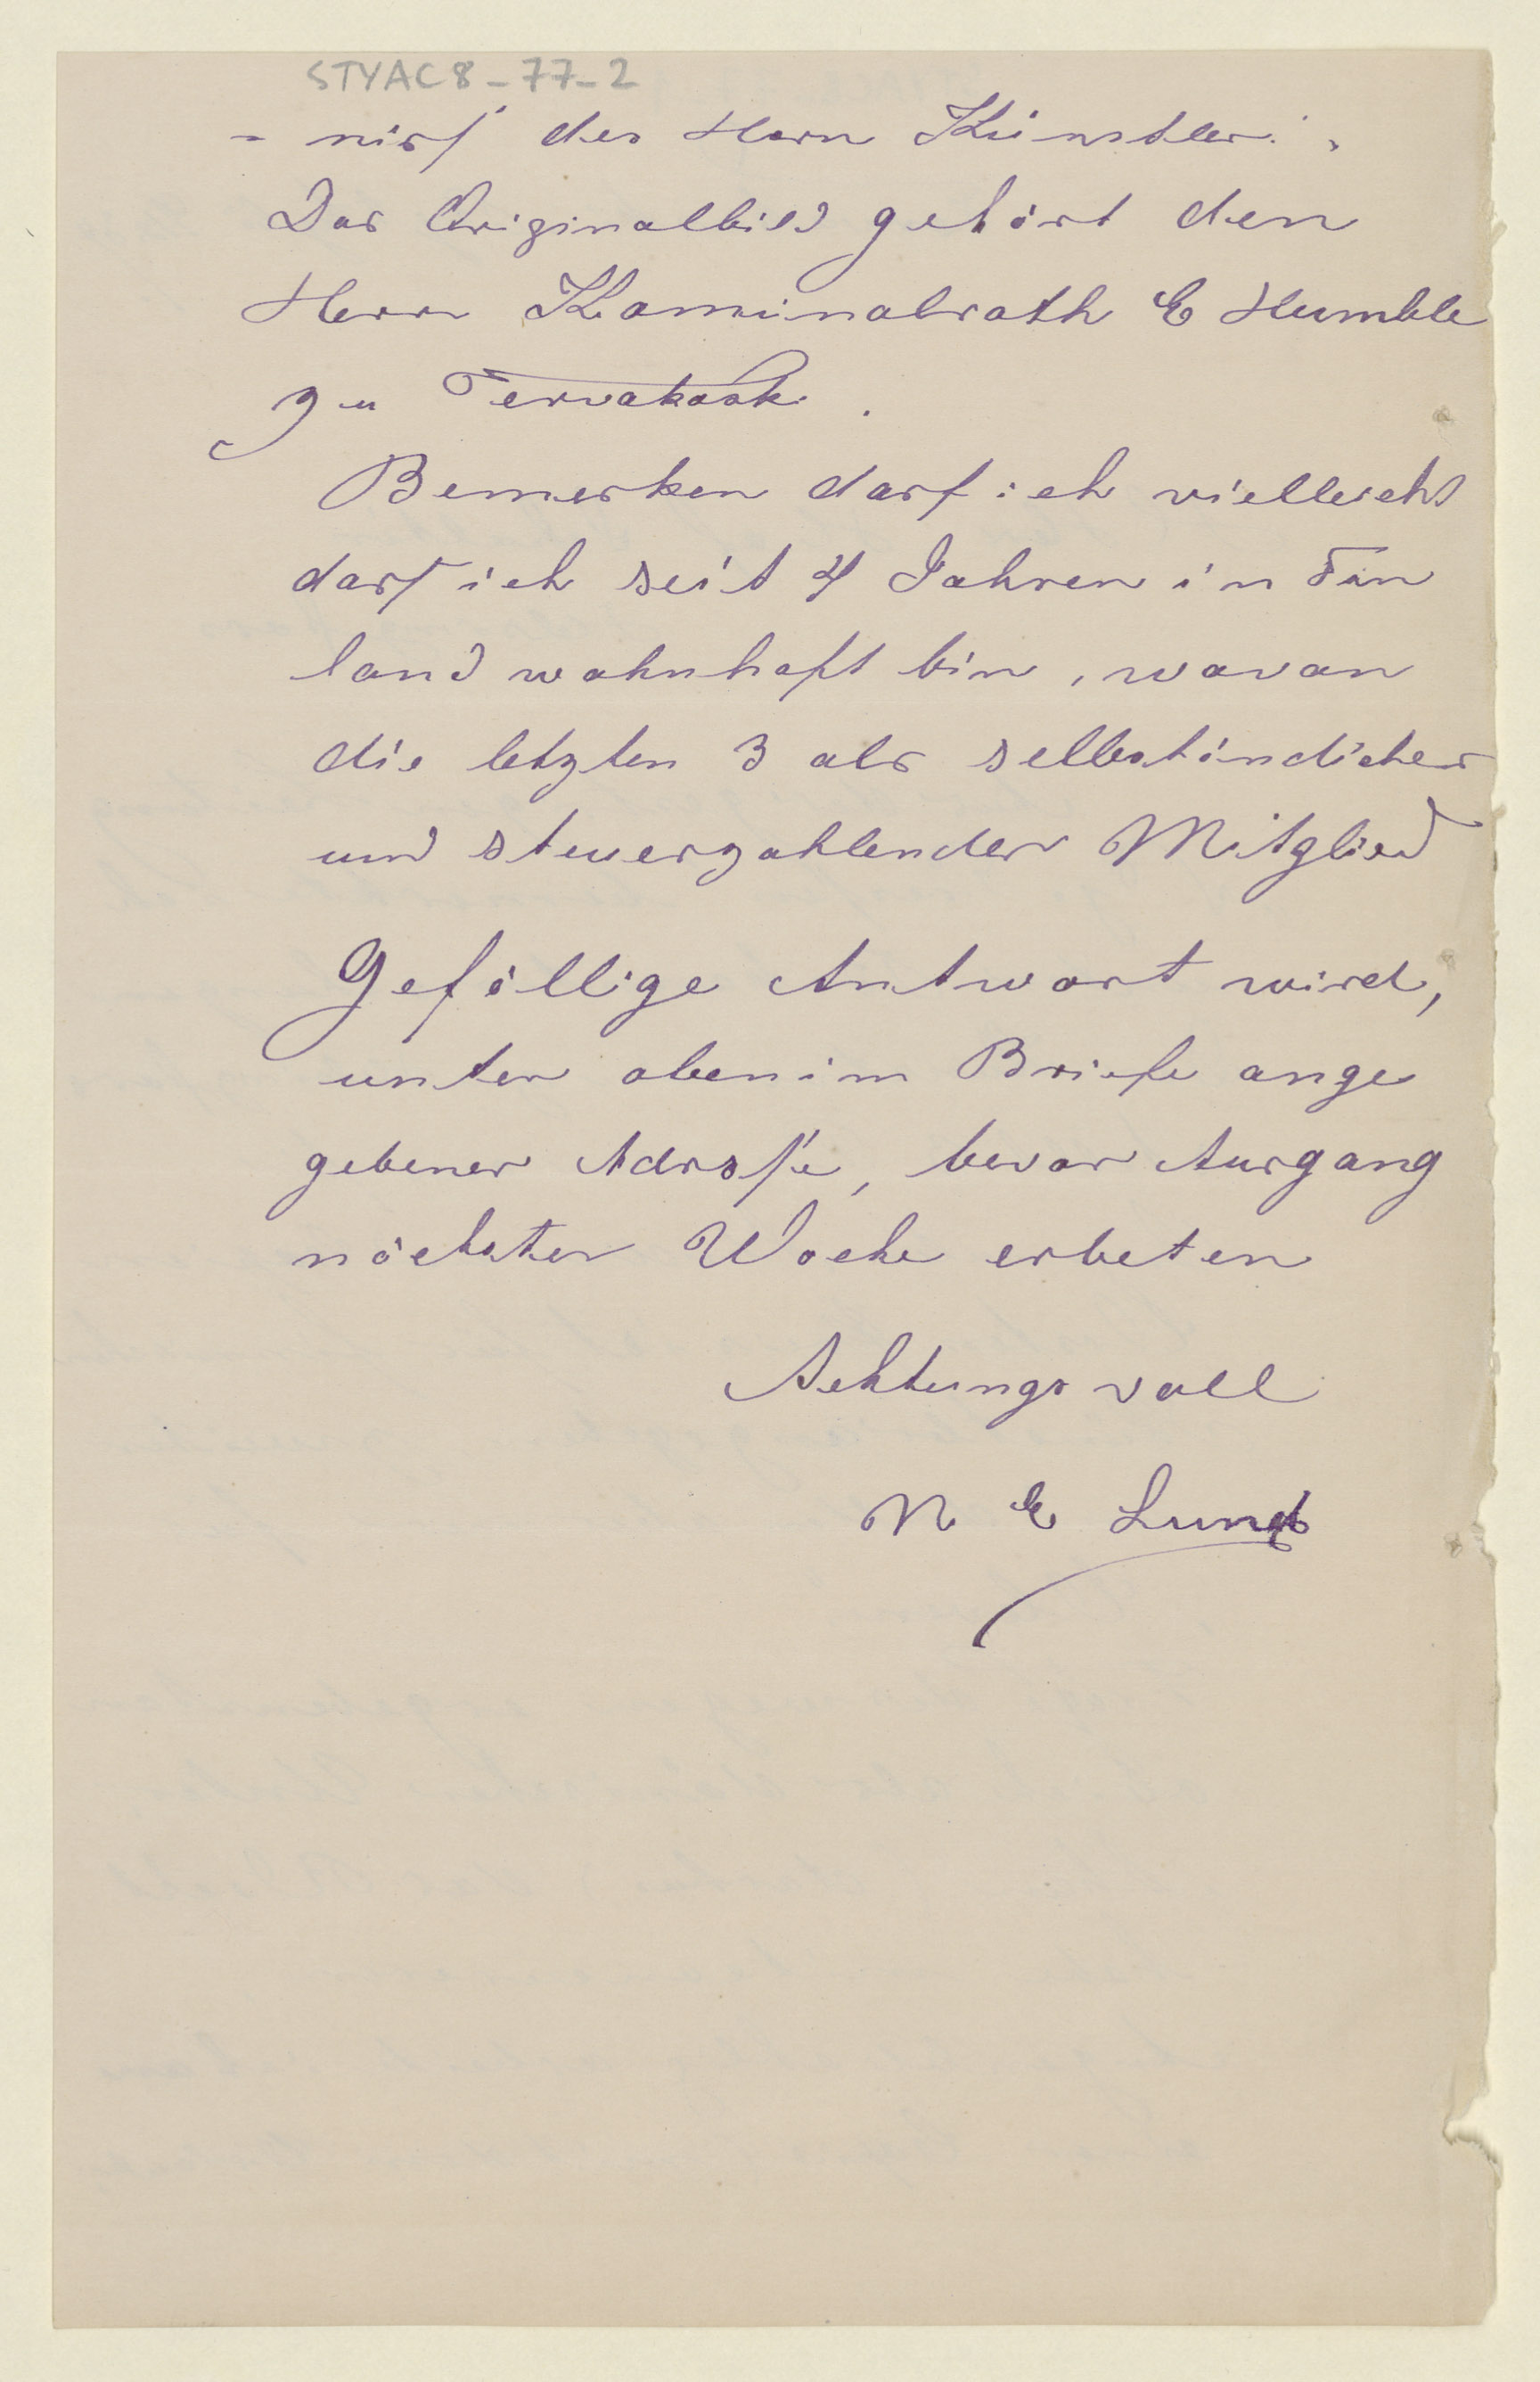 STYAC8-77-2
- niss des Herrn Künstlers.
Das Originalbild gehört den
Herrn Kominalrath E Humble
zu Tervakoski.
Bemerken darf ich vielleicht
dass ich seit 4 Jahren in Fin
land wohnhaft bin, wovon
die letzten 3 als selbständiches
und steuerzahlendes Mitglied
Gefällige Antwort wird,
unter oben im Briefe ange
gebener Adresse, bevor Ausgang
nächster Woche erbeten
Achtungsvoll
N E Lund